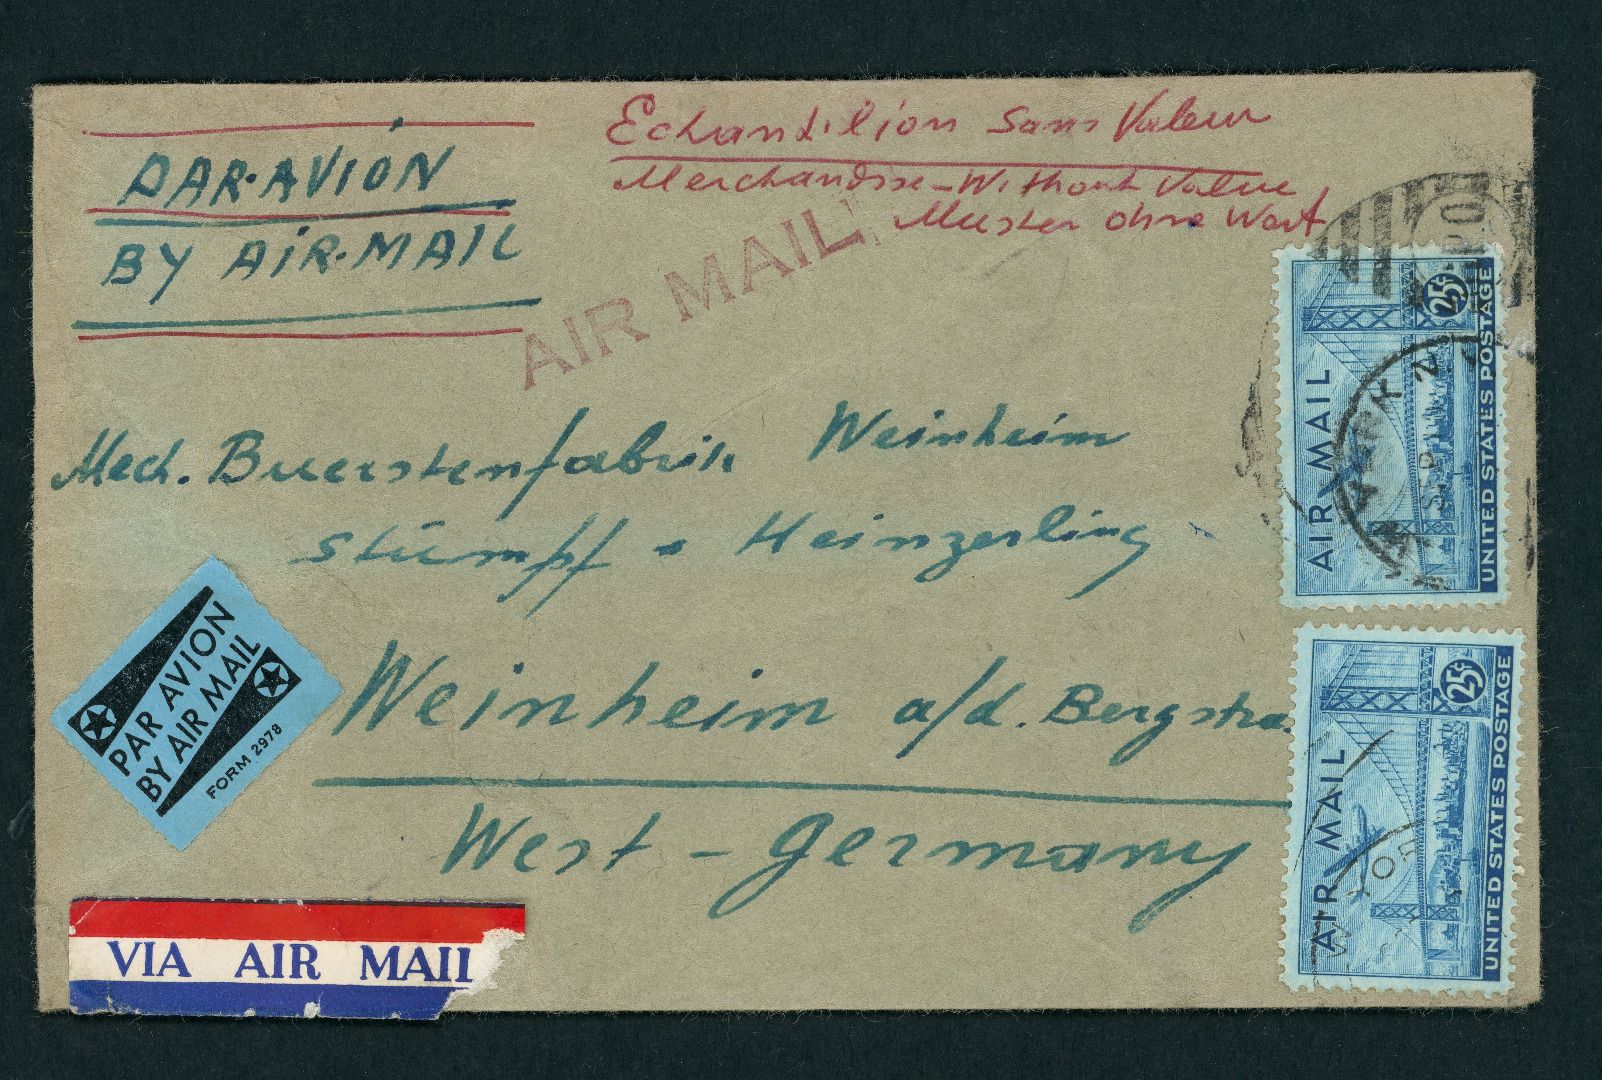 PAR·AVION
BY AIR·MAIL
Echandilion Sans Valeur
Merchandise - Without Value
Muster ohne Wert
AIR MAIL
Mech. Buerstenfabrik Weinheim
Stumpf - Heinzerling
Weinheim a/d. Bergstra.
West - Germany
PAR AVION
BY AIR MAIL
FORM 2978
VIA AIR MAIL
AIR MAIL
25¢
UNITED STATES POSTAGE
SEP
AIR MAIL
25¢
UNITED STATES POSTAGE